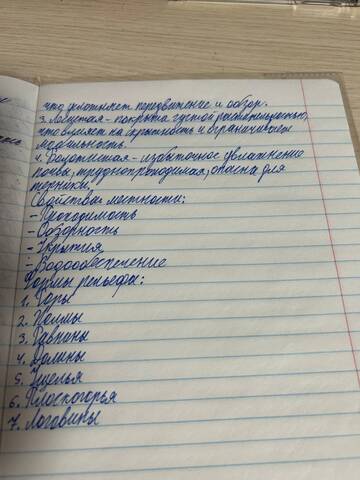 что усложняет передвижение и обзор.
3. Лесистая - покрыта густой растительностью,
что влияет на скрытность и ограничивает
мобильность.
4. Болотистая - избыточное увлажнение
почвы, труднопроходимая, опасна для
техники.
Свойства местности:
- Проходимость
- Обзорность
- Укрытия
- Водообеспечение
Формы рельефа:
1. Горы
2. Холмы
3. Равнины
4. Долины
5. Ущелья
6. Плоскогорья
7. Логовины